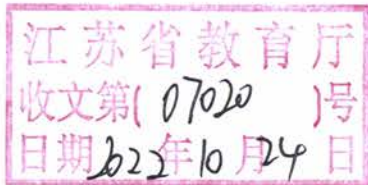 江苏省教育厅
收文第(07020)号
日期2022年10月24日